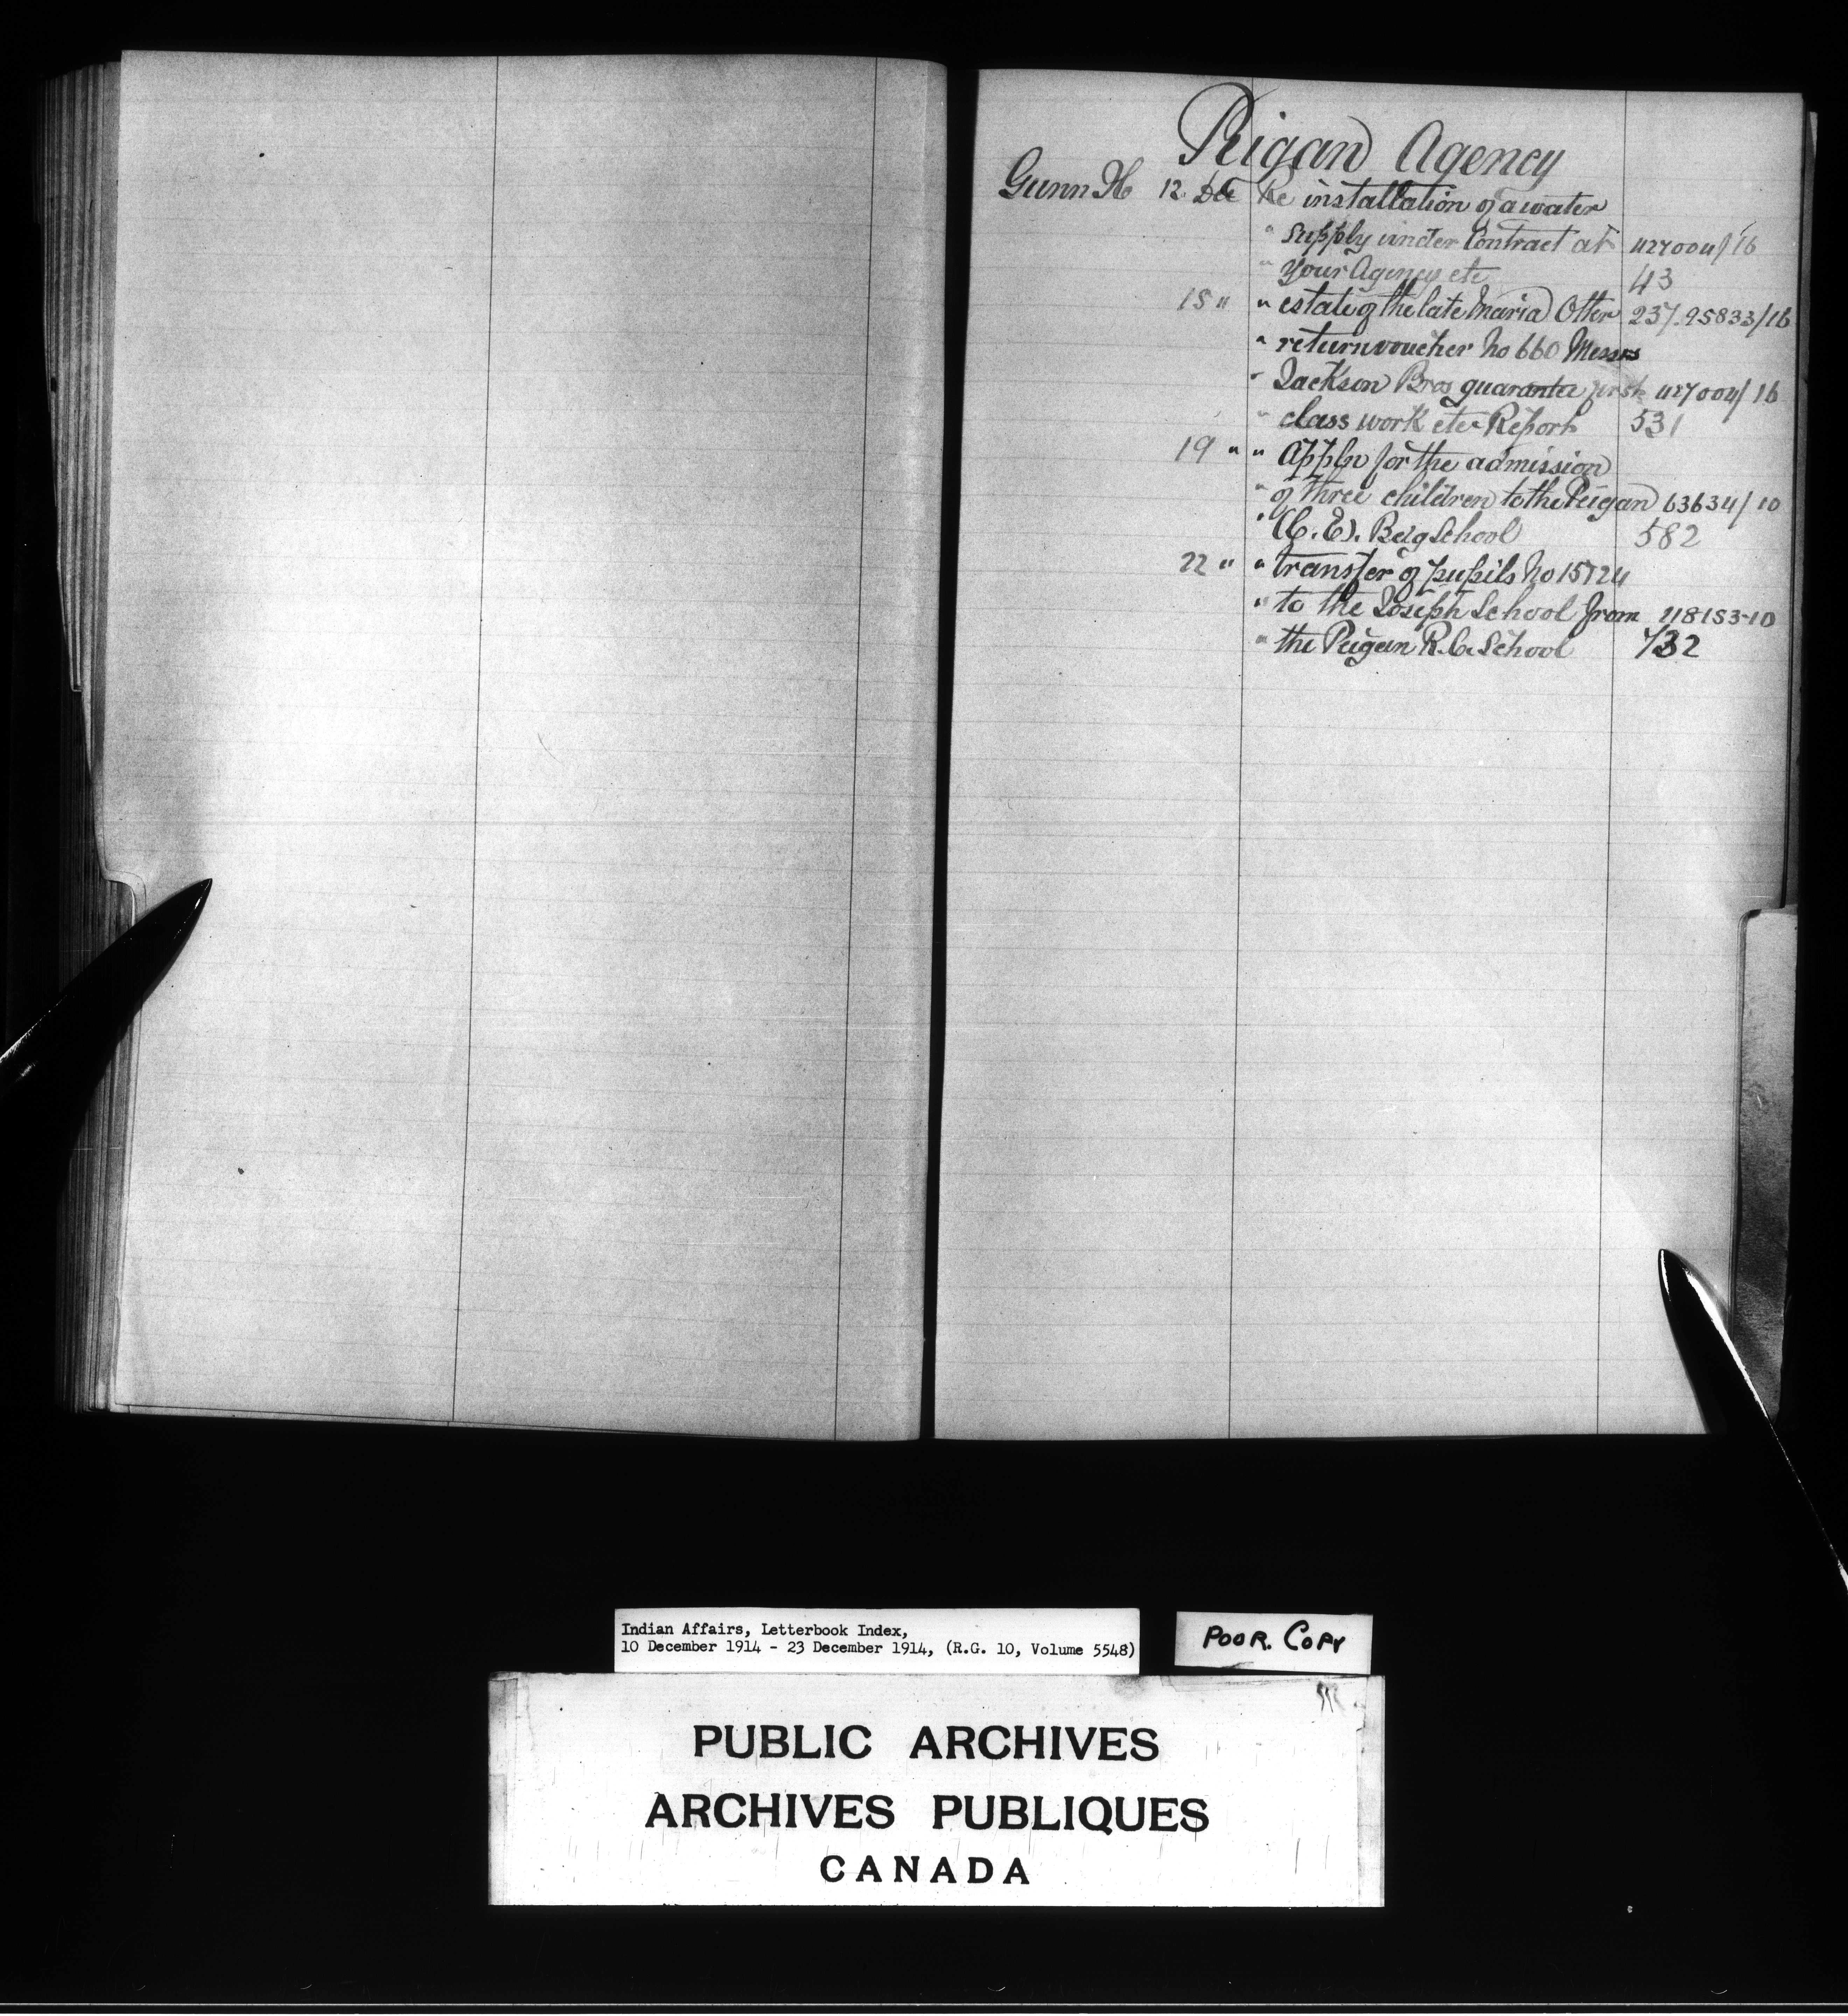 Peigan Agency
Gunn H 12 Dec Re installation of a water
" supply under Contract at 427004/16
" your Agency etc 43
15 " " estate of the late Maria Otter 237.95833/16
" return voucher No 660 Messrs
" Jackson Bros guarantee first 427004/16
" class work etc Report 531
19 " " Appln for the admission
" of three children to the Peigan 63634/10
" (C.E). Bdg School 582
22 " " transfer of pupils No 15 724
" to the Joseph School from 118153-10
" the Peigan R.C. School 732
Indian Affairs, Letterbook Index,
10 December 1914 - 23 December 1914, (R.G. 10, Volume 5548)
POOR. COPY
PUBLIC ARCHIVES
ARCHIVES PUBLIQUES
CANADA